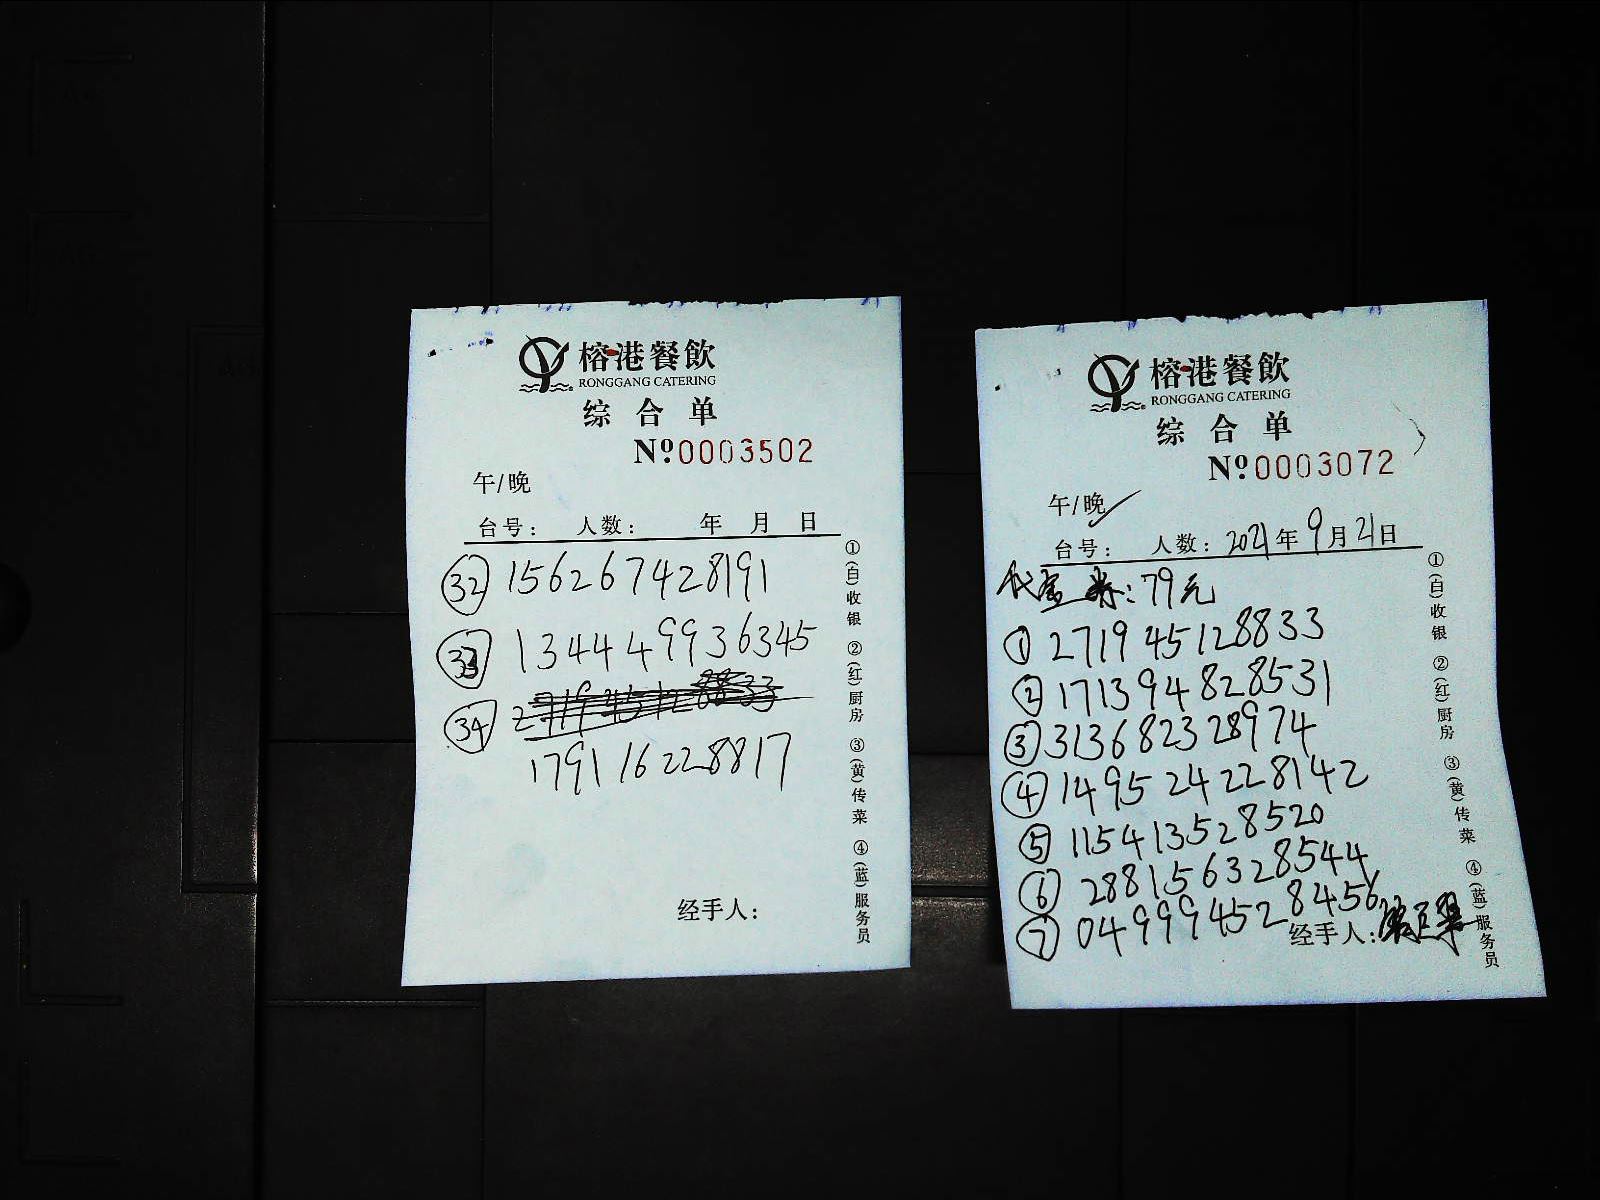 榕港餐飲
RONGGANG CATERING
综合单
Nº0003502
午/晚
台号: 人数: 年 月 日
32 156267428191
33 134449936345
34 271945128833
179116228817
经手人:
①(白)收银 ②(红)厨房 ③(黄)传菜 ④(蓝)服务员
榕港餐飲
RONGGANG CATERING
综合单
Nº0003072
午/晚
台号: 人数: 2021年9月21日
代金券:79元
① 271945128833
② 171394828531
③ 313682328974
④ 149524228142
⑤ 115413528520
⑥ 288156328544
⑦ 049994528456
经手人:
①(白)收银 ②(红)厨房 ③(黄)传菜 ④(蓝)服务员